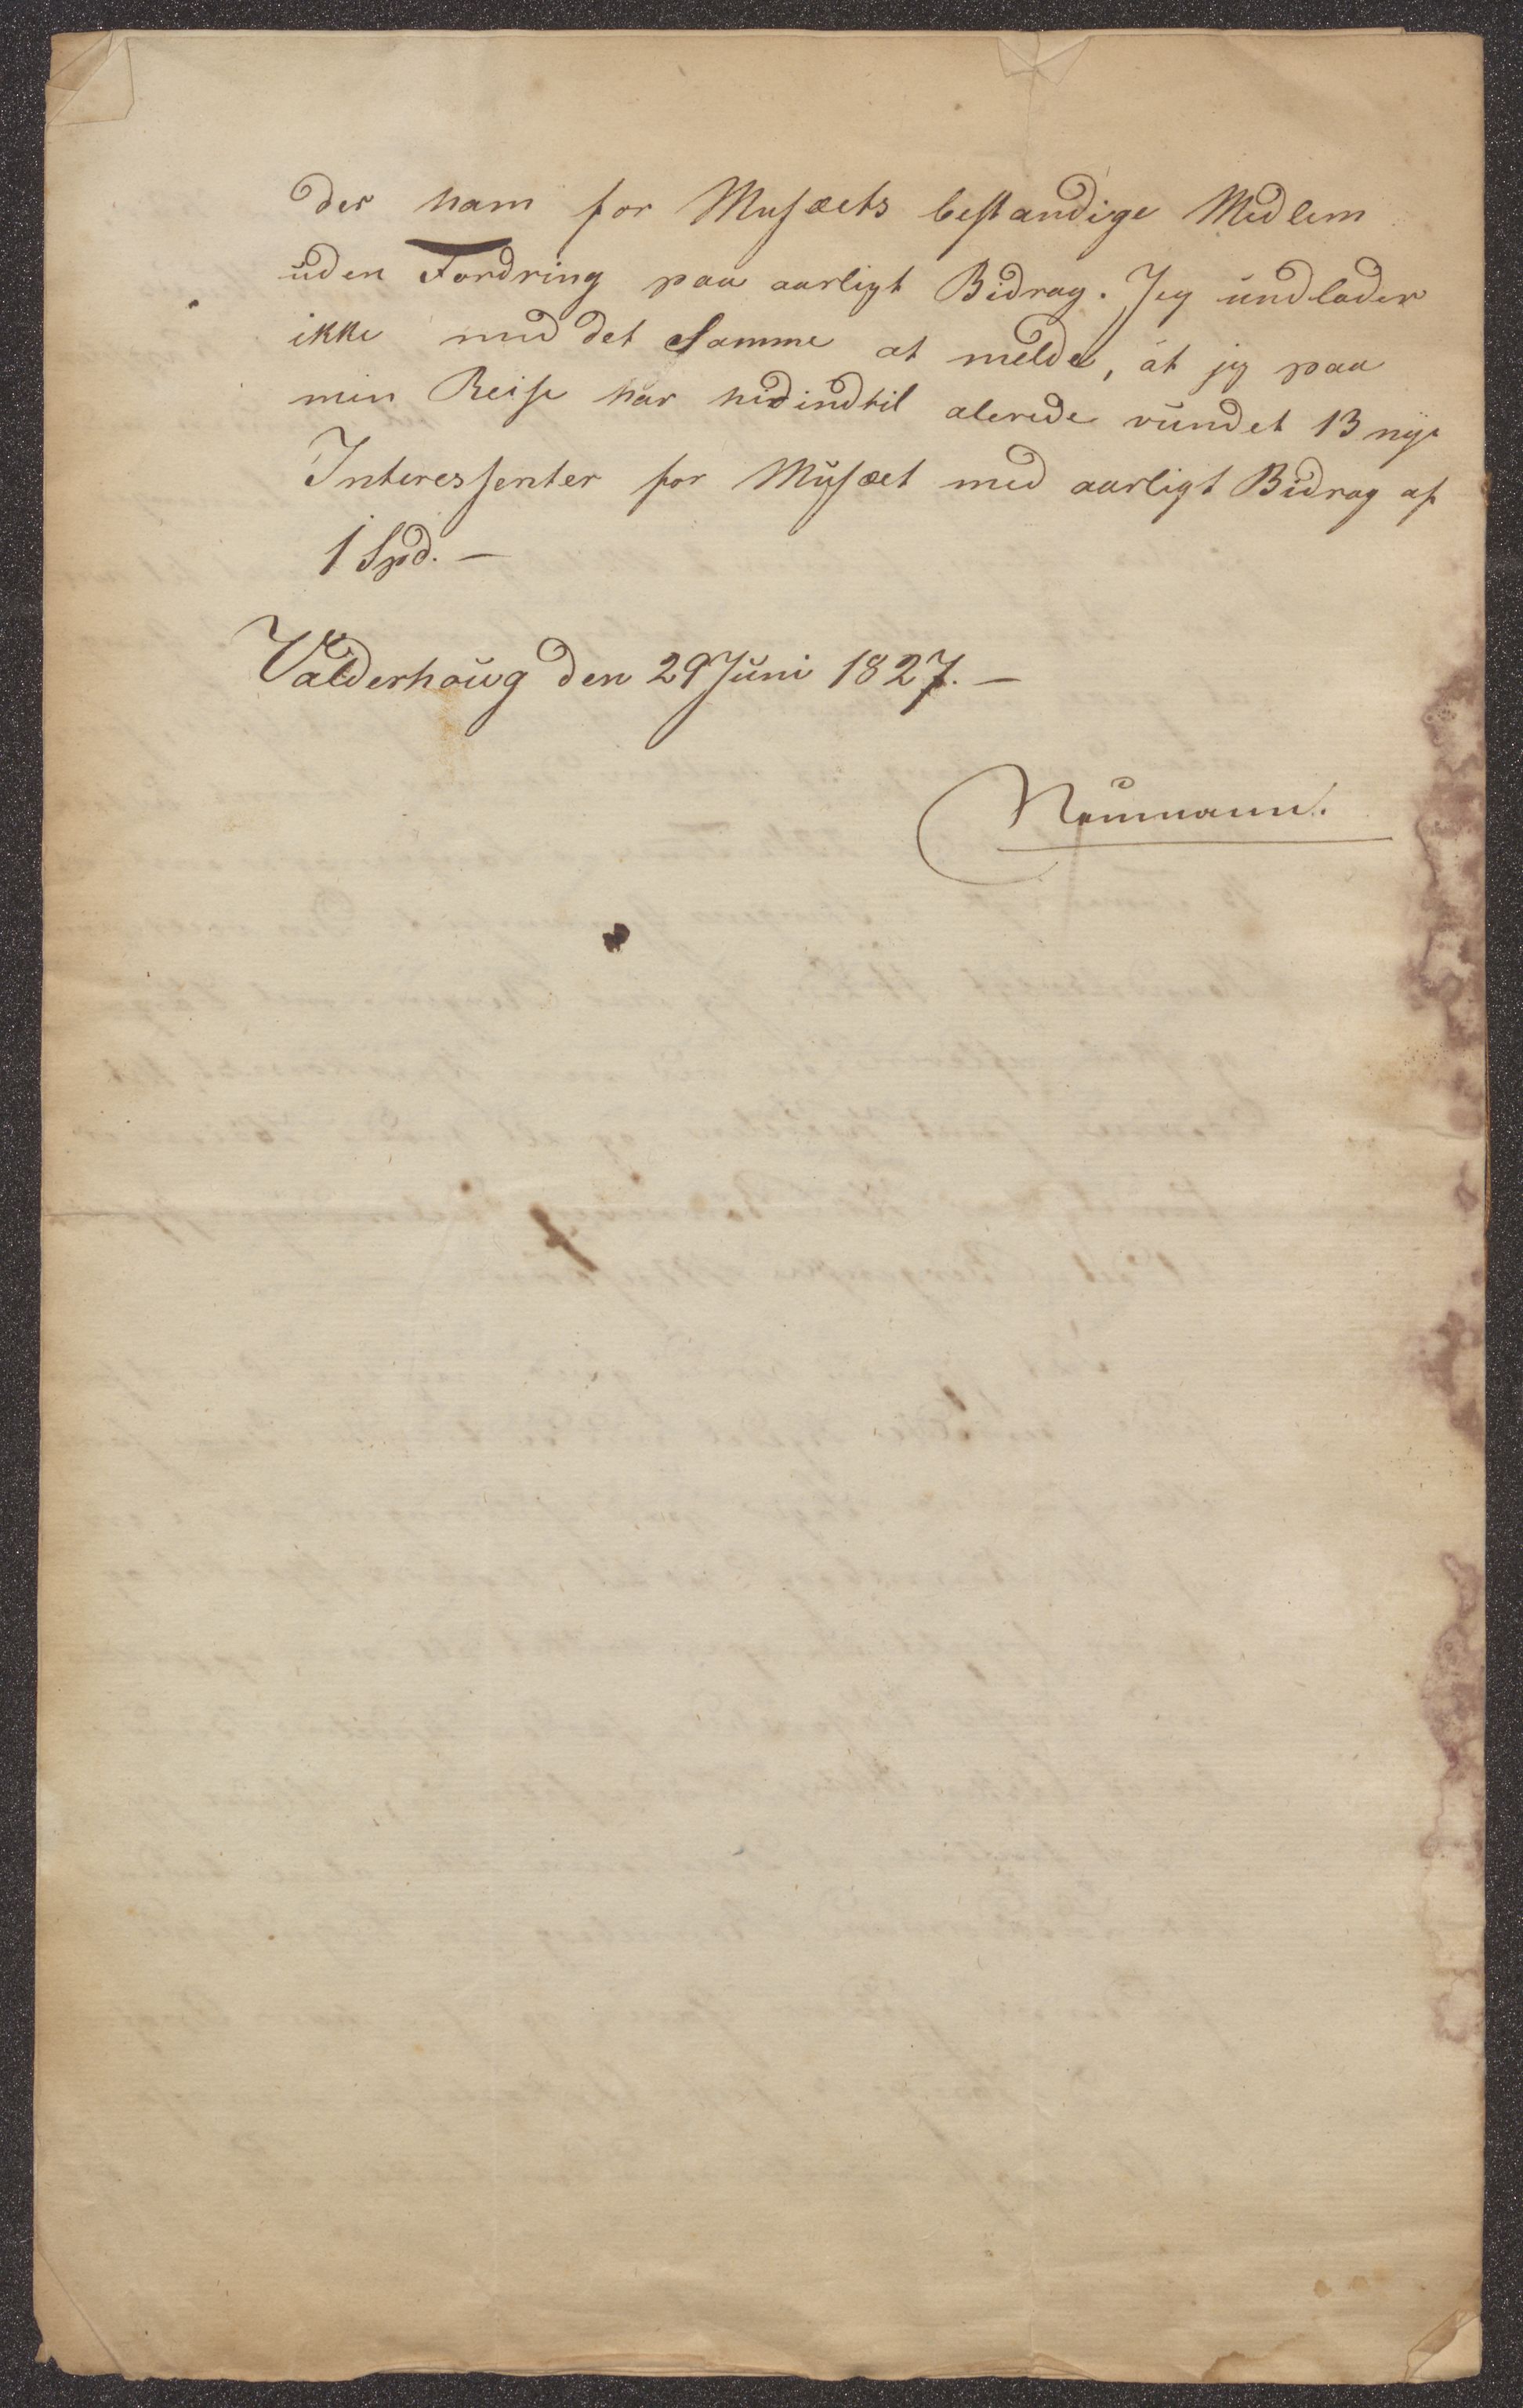 der ham for Musæets bestandige Medlem
uden Fordring paa aarligt Bidrag. Jeg undlader
ikke med det Samme at melde, at jeg paa
min Reise har hidindtil alerede vundet 13 nye
Interessenter for Musæet med aarligt Bidrag af
1 Spd. —
Valderhoug den 29 Juni 1827. —
Neumann.